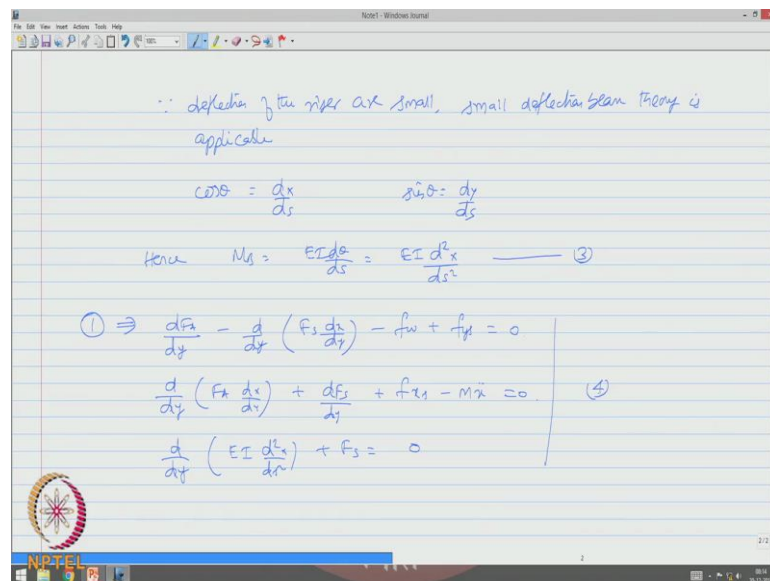 Note1 - Windows Journal
File Edit View Insert Actions Tools Help
∵ deflection of the riser are small, small deflection beam theory is
applicable
cosθ = dx/ds sinθ = dy/ds
Hence M_B = EI dθ/ds = EI d²x/ds² ——— ③
① ⇒ dF_A/dy - d/dy (F_s dx/dy) - f_w + f_ys = 0
d/dy (F_A dx/dy) + dF_s/dy + f_xs - Mẍ = 0 ④
d/dy (EI d²x/ds²) + F_s = 0
NPTEL
2/2
2